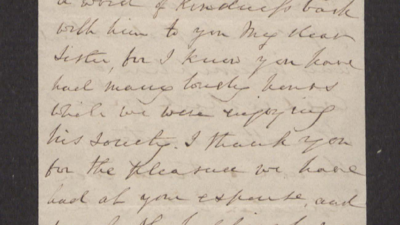 a word of kindness back
with him to you My dear
Sister, for I know you have
had many lonely hours
while we were enjoying
his society. I thank you
for the pleasure we have
had at your expense, and